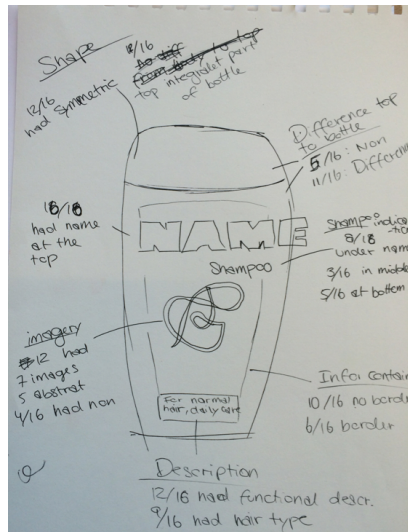 Shape
12/16
had symmetric
16/16
No diff
from body to top
top integralet part
of bottle
Difference top
to bottle
5/16: Non
11/16: Differen
16/16
had name
at the
top
NAME
Shampoo
Shampoo indica
-tion
8/16
under name
3/16 in middle
5/16 at bottom
imagery
12 had
7 images
5 abstrat
4/16 had non
For normal
hair, daily care
Infor contain
10/16 no border
6/16 border
Description
12/16 had functional descr.
9/16 had hair type